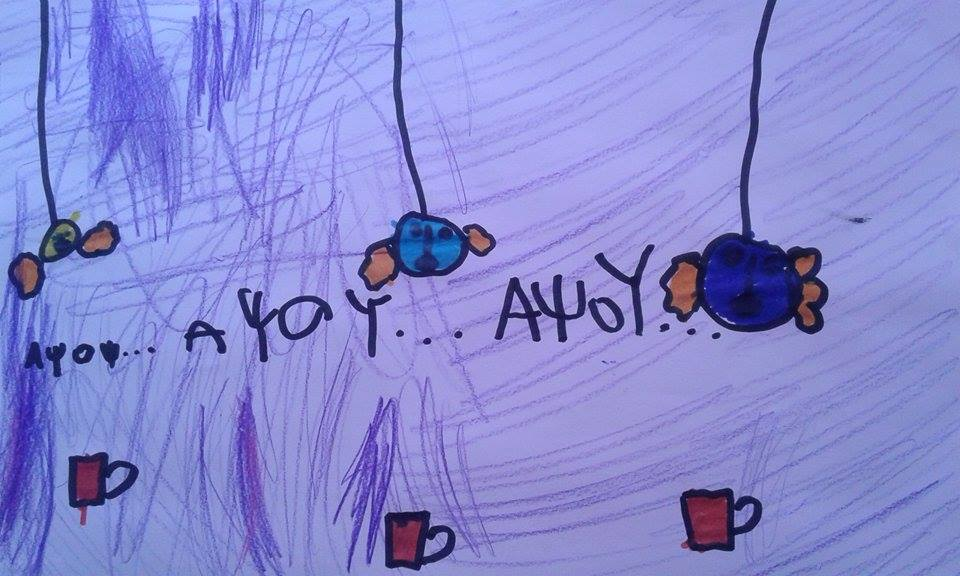 Αψοψ... ΑΨΟΥ... ΑΨΟΥ...